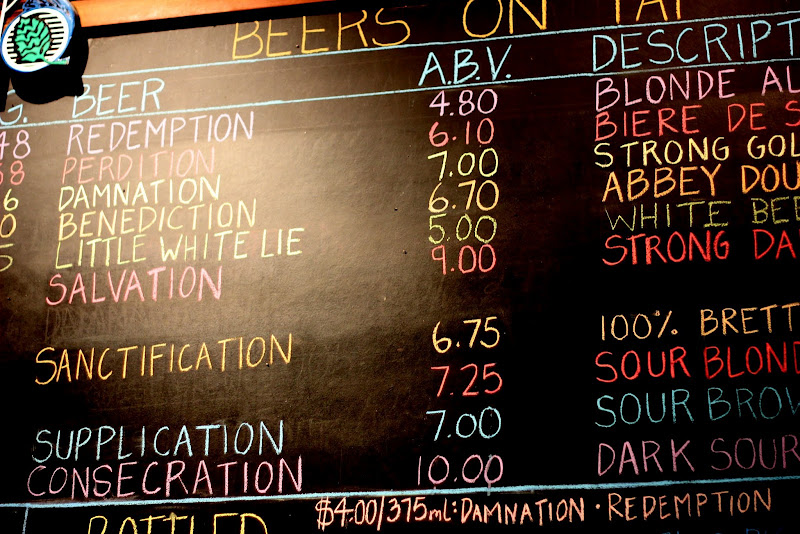 BEERS ON TAP
G. BEER A.B.V. DESCRIPT
48 REDEMPTION 4.80 BLONDE AL
8 PERDITION 6.10 BIERE DE S
6 DAMNATION 7.00 STRONG GOL
0 BENEDICTION 6.70 ABBEY DOU
5 LITTLE WHITE LIE 5.00 WHITE BEE
SALVATION 9.00 STRONG DA
SANCTIFICATION 6.75 100% BRETT
7.25 SOUR BLOND
SUPPLICATION 7.00 SOUR BROW
CONSECRATION 10.00 DARK SOUR
BOTTLED $4.00/375ml: DAMNATION · REDEMPTION